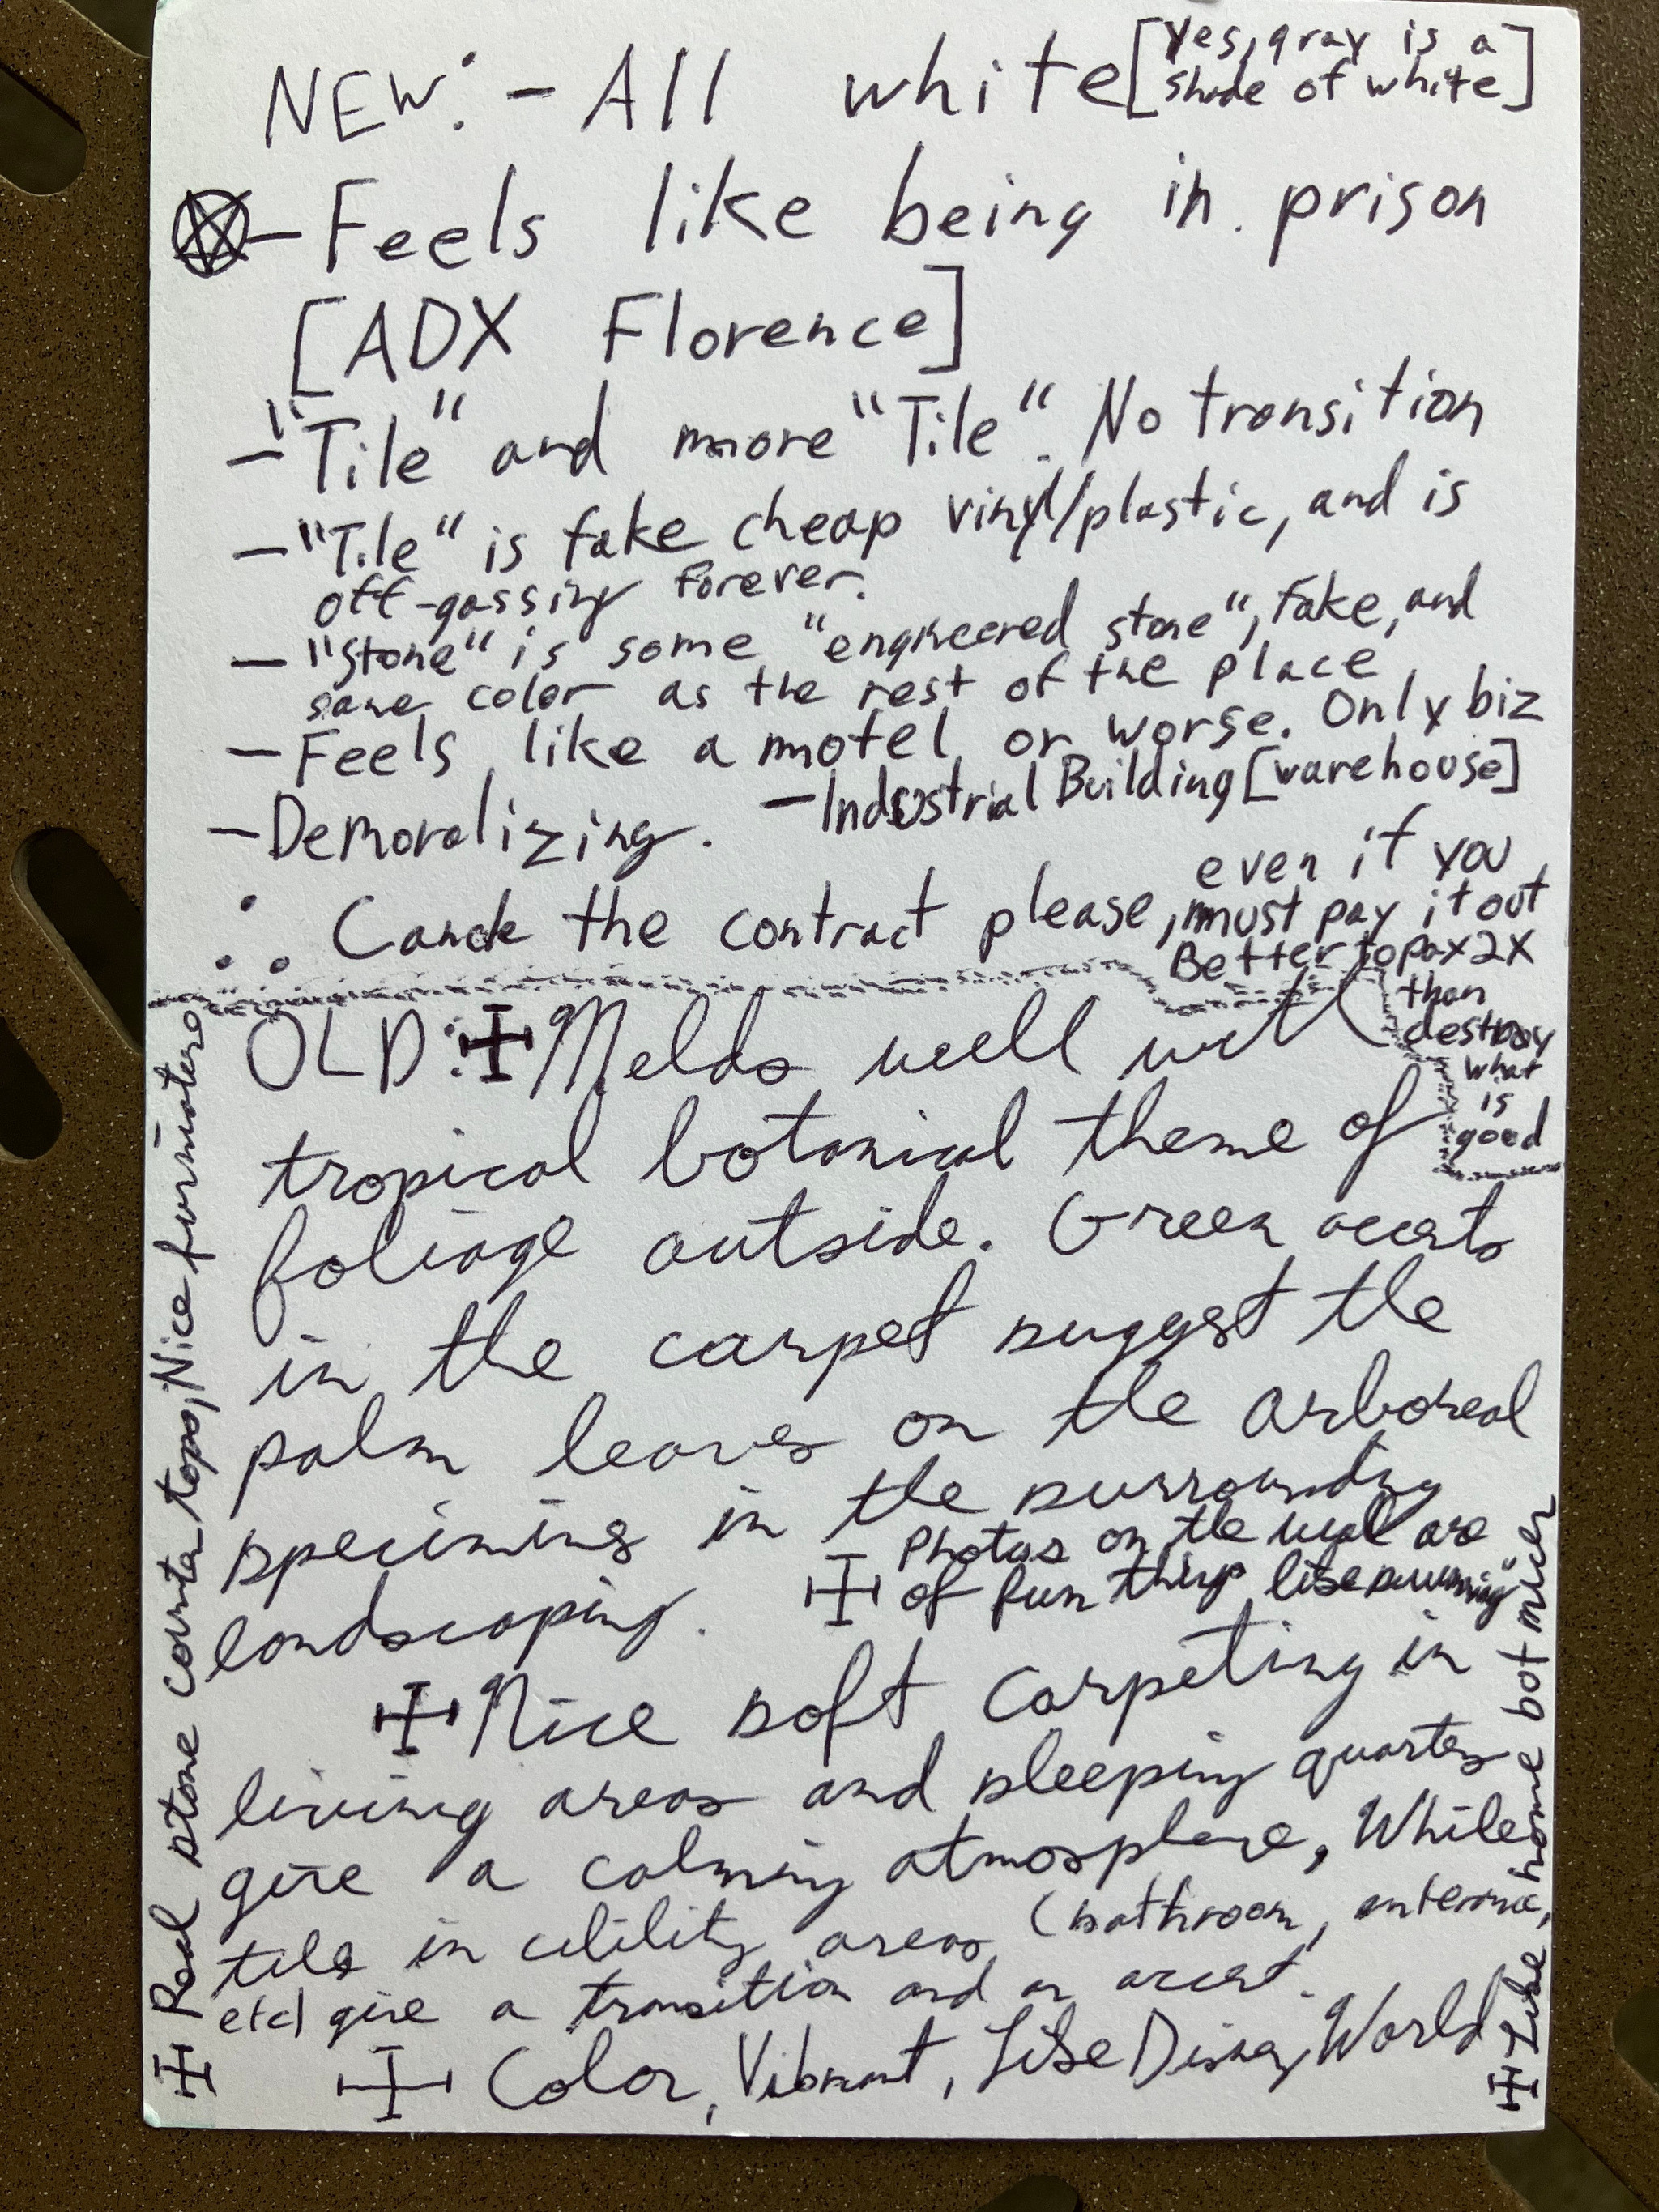 NEW: - All white [Yes, gray is a
shade of white]
- Feels like being in prison
[ADX Florence]
- "Tile" and more "Tile". No transition
- "Tile" is fake cheap vinyl/plastic, and is
off-gassing forever.
- "Stone" is some "engineered stone", fake, and
same color as the rest of the place
- Feels like a motel or worse. Only biz
- Demoralizing. - Industrial Building [warehouse]
∴ Cancle the contract please, even if you
must pay it out
Better to pay 2X
than
destroy
what
is
good
OLD: ☩ Melds well with
tropical botanical theme of
foliage outside. Green accents
in the carpet suggest the
palm leaves on the arboreal
specimins in the surrounding
landscaping. ☩ Photos on the wall are
of fun things like swimming
☩ Nice soft carpeting in
living areas and sleeping quarters
give a calming atmosphere, While
tile in utility areas (bathroom, enterance,
etc) give a transition and an accent.
☩ Color, Vibrant, Like Disney World
☩ Real stone counta tops, Nice furniature
☩ Like home bot nicer